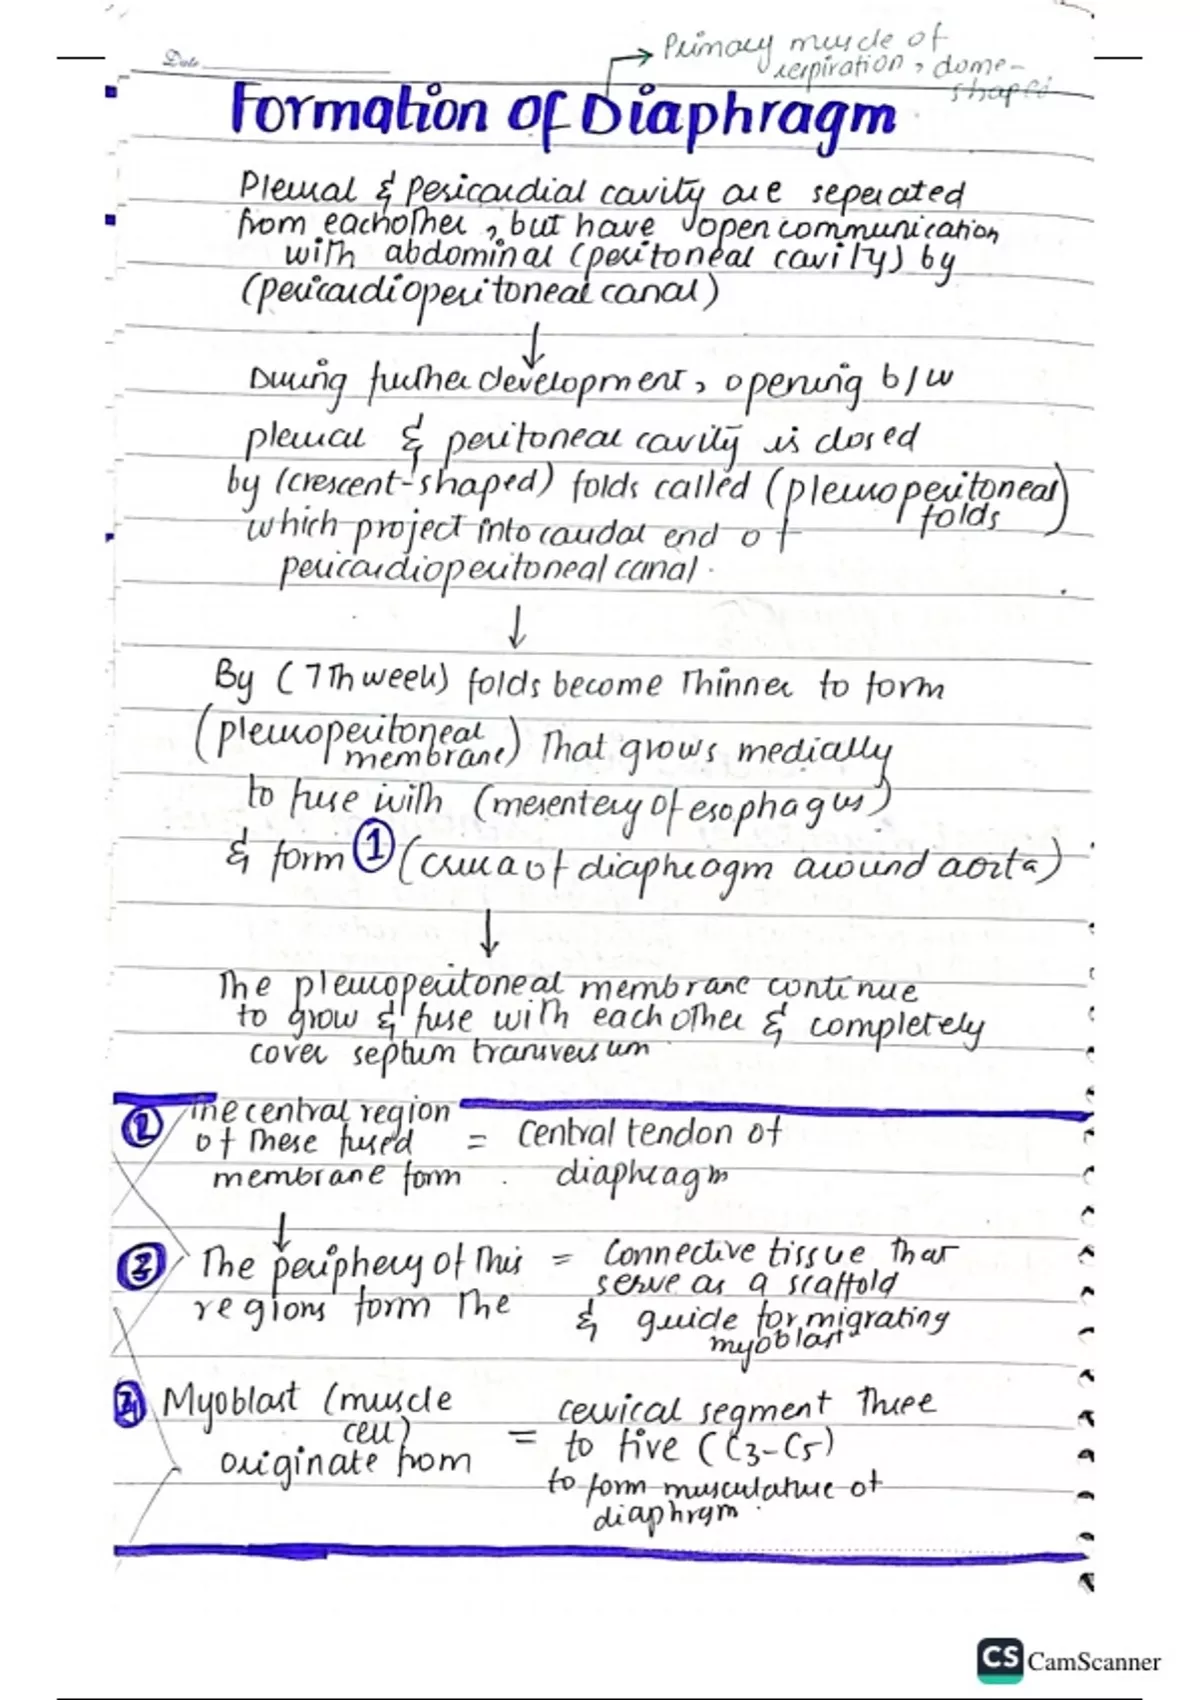 Date
Primary muscle of
respiration, dome-
shaped
Formation of Diaphragm
Pleural & Pericardial cavity are seperated
from eachother, but have open communication
with abdominal (peritoneal cavity) by
(pericardioperitoneal canal)
↓
During further development, opening b/w
pleural & peritoneal cavity is closed
by (crescent-shaped) folds called (pleuroperitoneal
folds)
which project into caudal end of
pericardioperitoneal canal.
↓
By (7th week) folds become thinner to form
(pleuroperitoneal
membrane) that grows medially
to fuse with (mesentery of esophagus)
& form ① (crura of diaphragm around aorta)
↓
The pleuroperitoneal membrane continue
to grow & fuse with each other & completely
cover septum transversum
② The central region
of these fused = Central tendon of
membrane form . diaphragm
↓
③ The periphery of this = Connective tissue that
serve as a scaffold
regions form the & guide for migrating
myoblast
Myoblast (muscle cervical segment three
cell)
originate from = to five (C3-C5)
to form musculature of
diaphrgm.
CS CamScanner